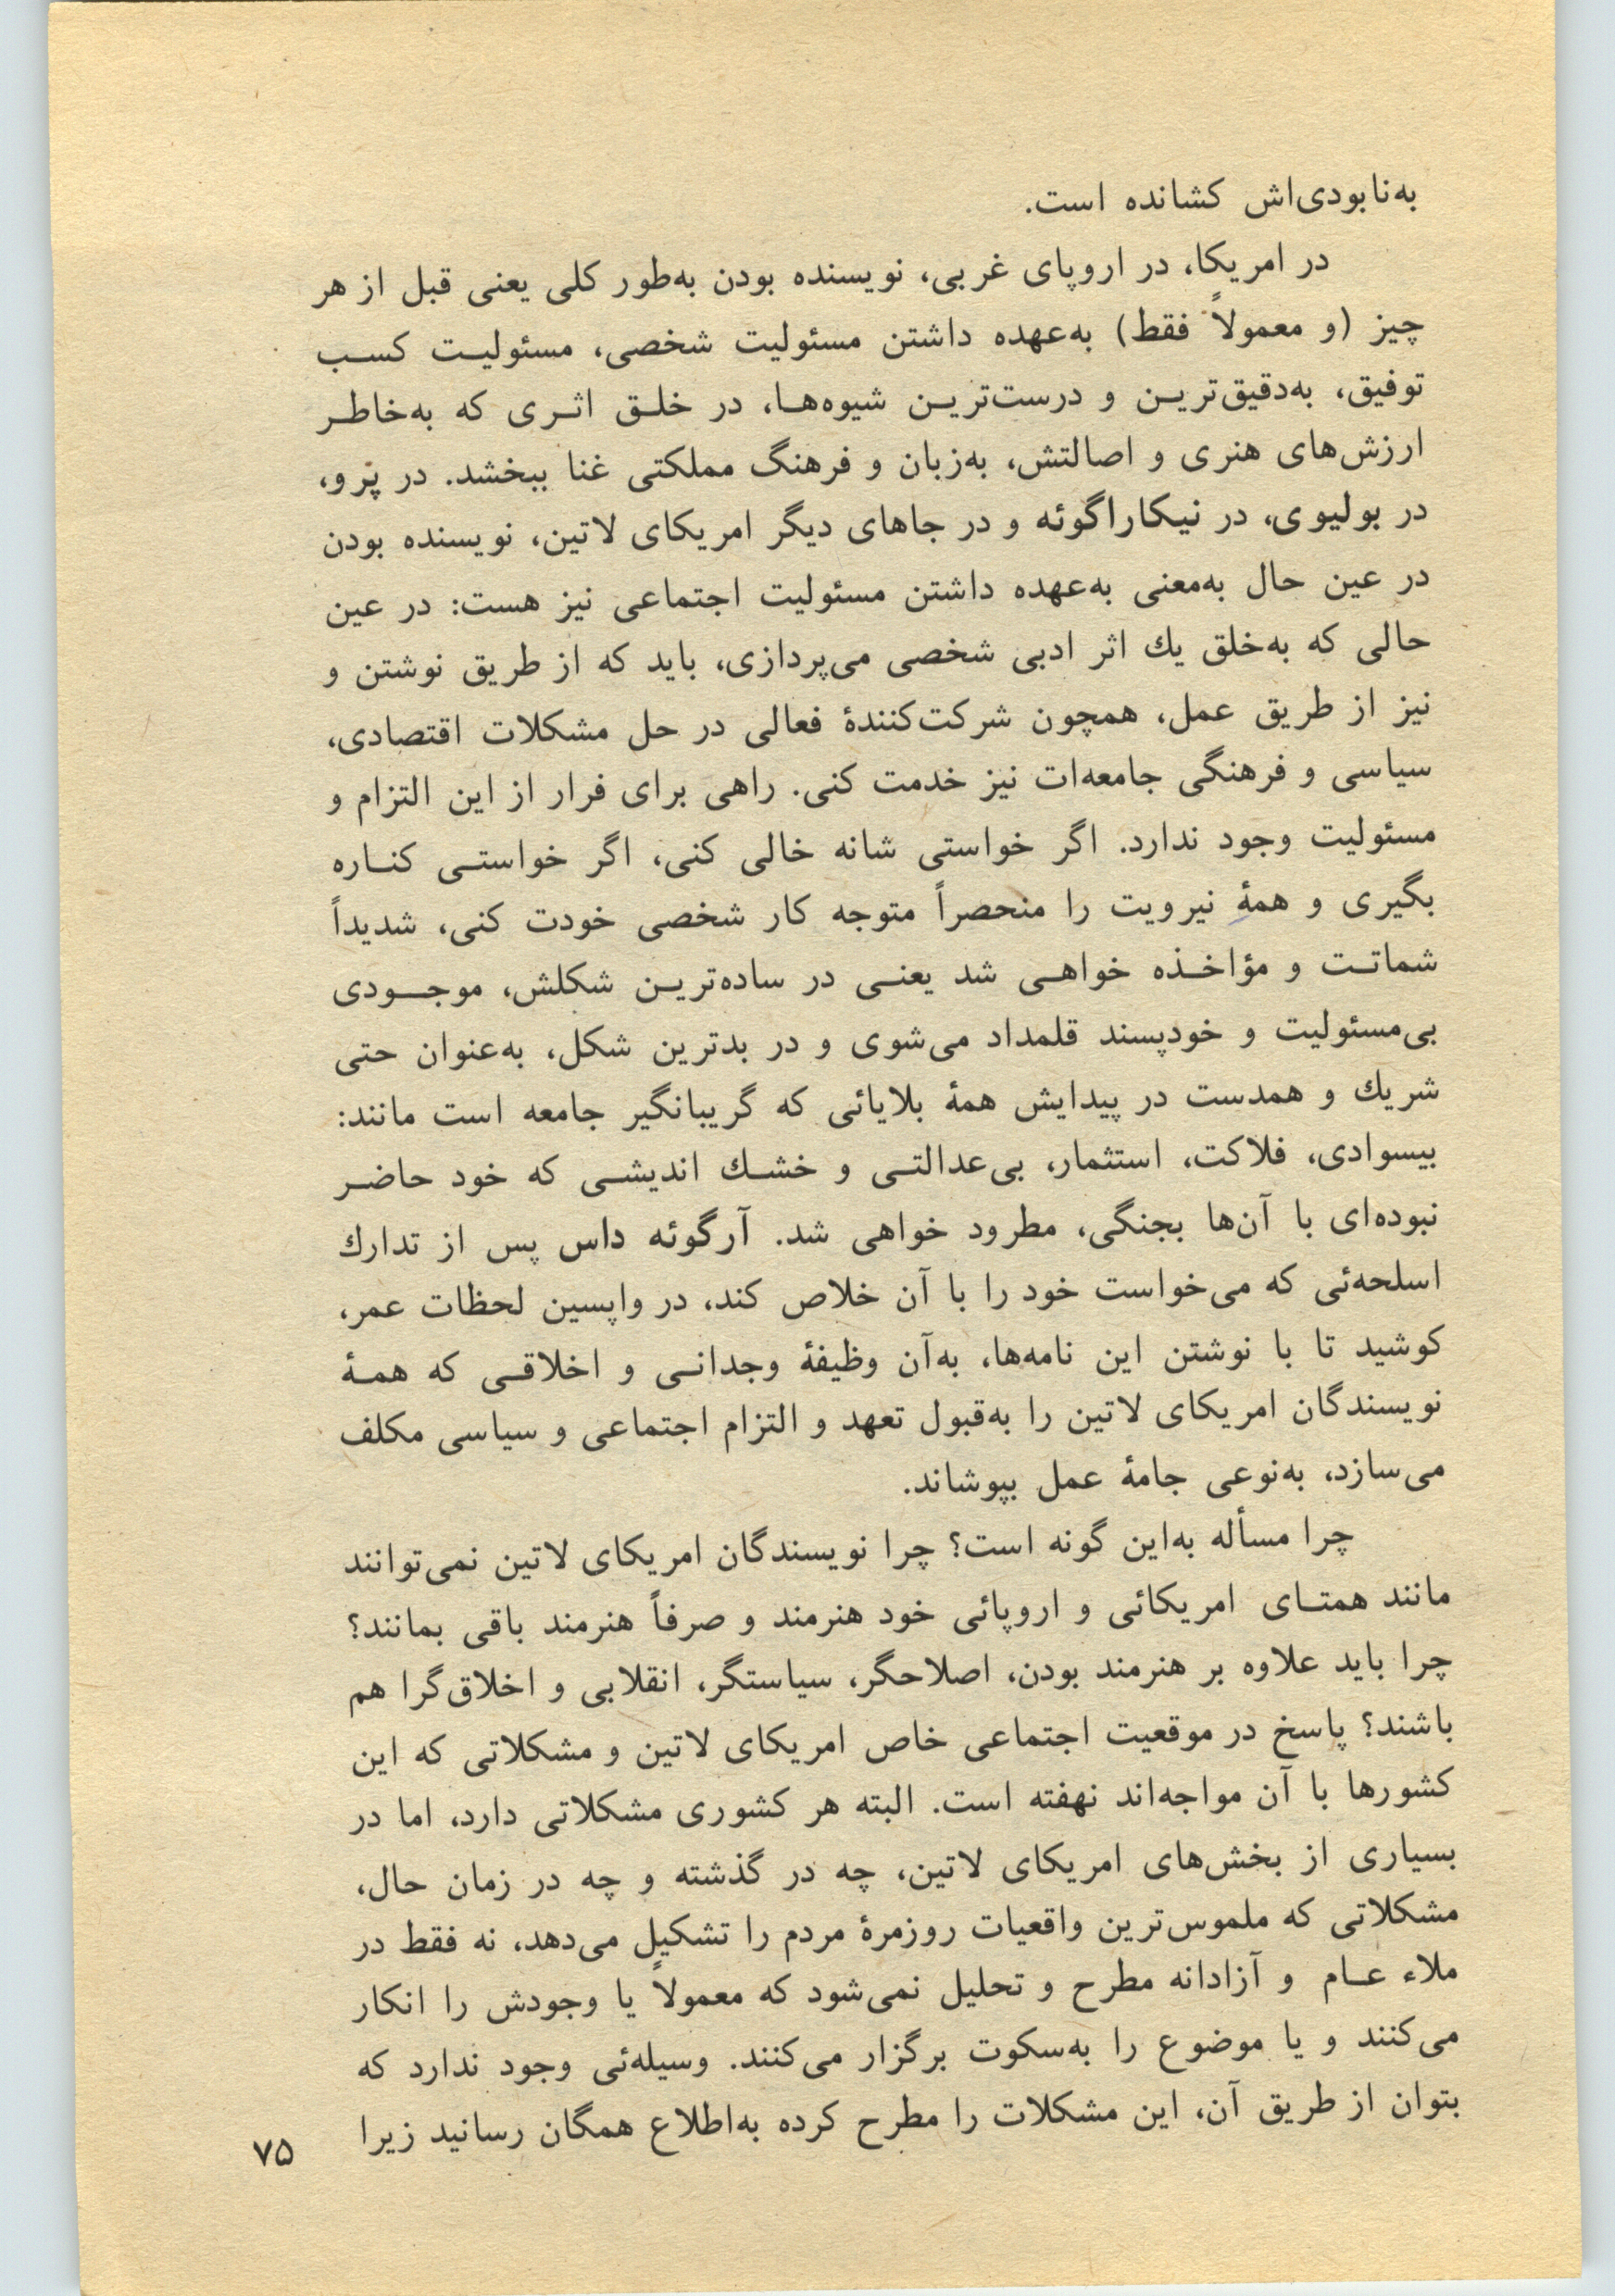 به‌نابودی‌اش کشانده است.
در امریکا، در اروپای غربی، نویسنده بودن به‌طور کلی یعنی قبل از هر
چیز (و معمولاً فقط) به‌عهده داشتن مسئولیت شخصی، مسئولیت کسب
توفیق، به‌دقیق‌ترین و درست‌ترین شیوه‌ها، در خلق اثری که به‌خاطر
ارزش‌های هنری و اصالتش، به‌زبان و فرهنگ مملکتی غنا ببخشد. در پرو،
در بولیوی، در نیکاراگوئه و در جاهای دیگر امریکای لاتین، نویسنده بودن
در عین حال به‌معنی به‌عهده داشتن مسئولیت اجتماعی نیز هست: در عین
حالی که به‌خلق یك اثر ادبی شخصی می‌پردازی، باید که از طریق نوشتن و
نیز از طریق عمل، همچون شرکت‌کنندۀ فعالی در حل مشکلات اقتصادی،
سیاسی و فرهنگی جامعه‌ات نیز خدمت کنی. راهی برای فرار از این التزام و
مسئولیت وجود ندارد. اگر خواستی شانه خالی کنی، اگر خواستی کناره
بگیری و همۀ نیرویت را منحصراً متوجه کار شخصی خودت کنی، شدیداً
شماتت و مؤاخذه خواهی شد یعنی در ساده‌ترین شکلش، موجودی
بی‌مسئولیت و خودپسند قلمداد می‌شوی و در بدترین شکل، به‌عنوان حتی
شریك و همدست در پیدایش همۀ بلایائی که گریبانگیر جامعه است مانند:
بیسوادی، فلاکت، استثمار، بی‌عدالتی و خشك اندیشی که خود حاضر
نبوده‌ای با آن‌ها بجنگی، مطرود خواهی شد. آرگوئه داس پس از تدارك
اسلحه‌ئی که می‌خواست خود را با آن خلاص کند، در واپسین لحظات عمر،
کوشید تا با نوشتن این نامه‌ها، به‌آن وظیفۀ وجدانی و اخلاقی که همۀ
نویسندگان امریکای لاتین را به‌قبول تعهد و التزام اجتماعی و سیاسی مکلف
می‌سازد، به‌نوعی جامۀ عمل بپوشاند.
چرا مسأله به‌این گونه است؟ چرا نویسندگان امریکای لاتین نمی‌توانند
مانند همتای امریکائی و اروپائی خود هنرمند و صرفاً هنرمند باقی بمانند؟
چرا باید علاوه بر هنرمند بودن، اصلاحگر، سیاستگر، انقلابی و اخلاق‌گرا هم
باشند؟ پاسخ در موقعیت اجتماعی خاص امریکای لاتین و مشکلاتی که این
کشورها با آن مواجه‌اند نهفته است. البته هر کشوری مشکلاتی دارد، اما در
بسیاری از بخش‌های امریکای لاتین، چه در گذشته و چه در زمان حال،
مشکلاتی که ملموس‌ترین واقعیات روزمرۀ مردم را تشکیل می‌دهد، نه فقط در
ملاء عام و آزادانه مطرح و تحلیل نمی‌شود که معمولاً یا وجودش را انکار
می‌کنند و یا موضوع را به‌سکوت برگزار می‌کنند. وسیله‌ئی وجود ندارد که
بتوان از طریق آن، این مشکلات را مطرح کرده به‌اطلاع همگان رسانید زیرا
۷۵